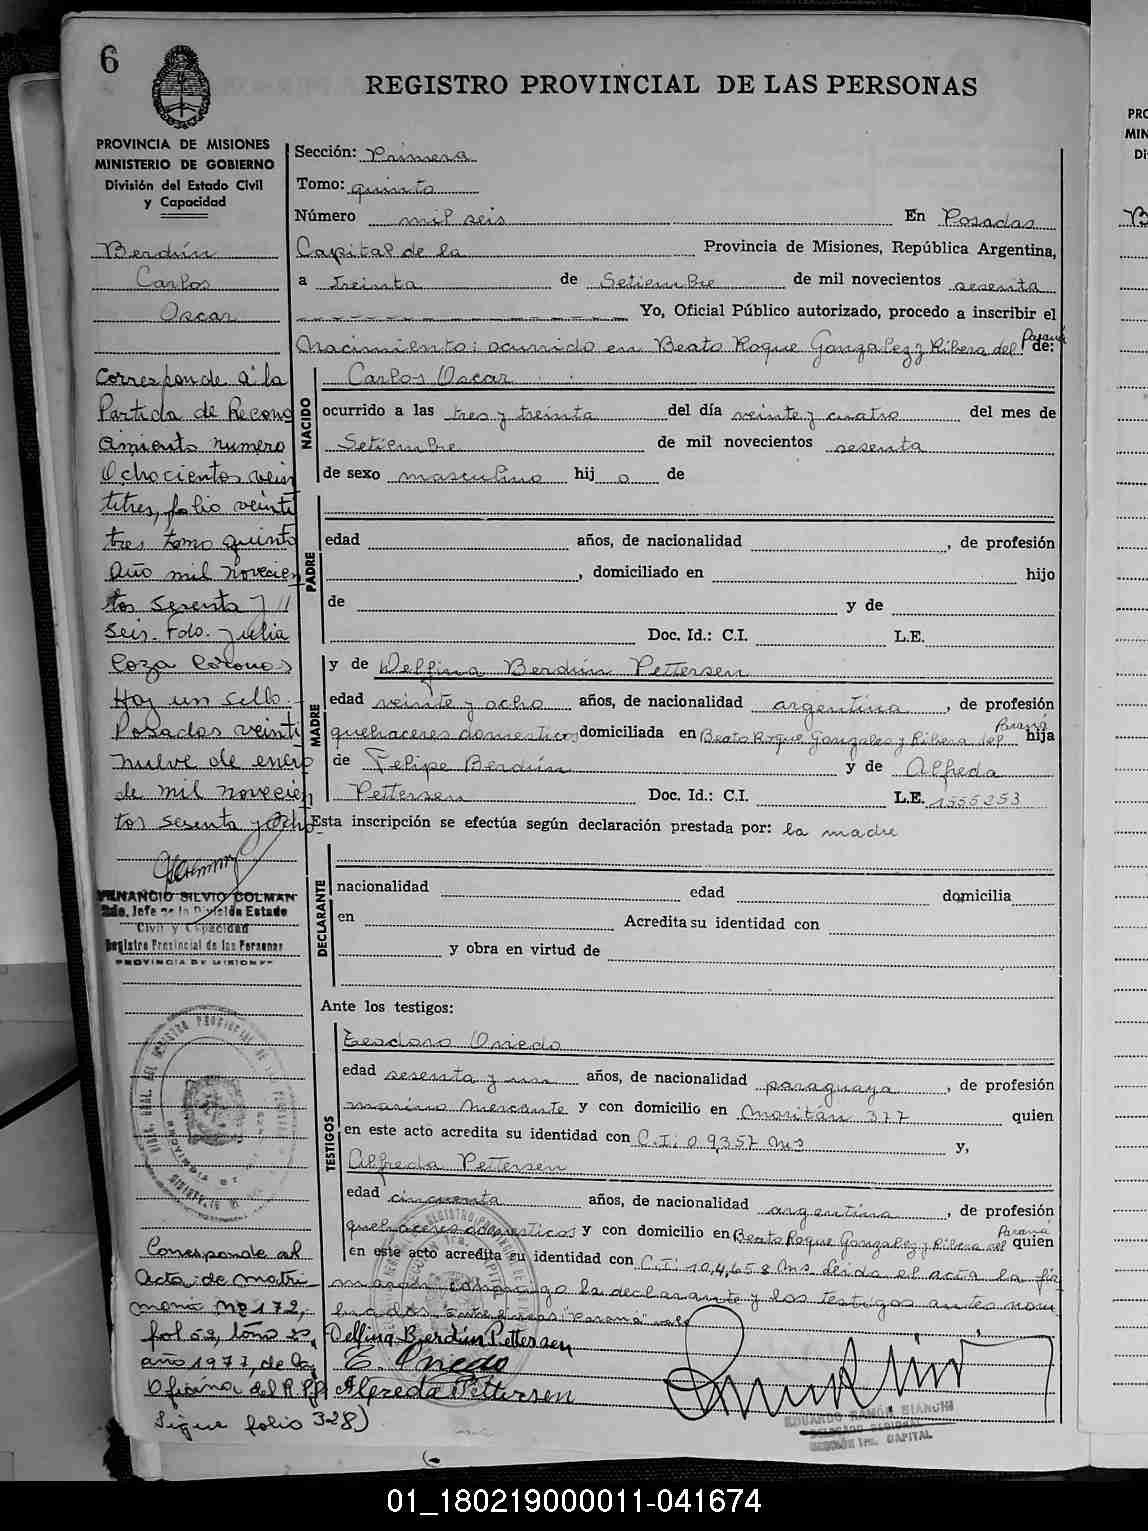 6
REGISTRO PROVINCIAL DE LAS PERSONAS
PROVINCIA DE MISIONES
MINISTERIO DE GOBIERNO
División del Estado Civil
y Capacidad
Berdún
Carlos
Oscar
Corresponde a la
Partida de Recono
amiento numero
Ochocientos vein
titres, folio veinti
tres tomo quinto
Año mil novecien
tos sesenta y //
seis. Fdo. Julia
Hay un sello.-
Posadas veinti
nueve de enero
de mil novecien
tos sesenta y ocho
VENANCIO SILVIO COLMAN
2do. Jefe de la División Estado
Civil y Capacidad
Registro Provincial de las Personas
PROVINCIA DE MISIONES
Corresponde al
Acta de matri-
monio Nº 172,
año 1977, de la
Oficina del R.P.P
Sigue folio 328)
Sección: Primera
Tomo: quinto
Número mil seis En Posadas
Capital de la Provincia de Misiones, República Argentina,
a treinta de Setiembre de mil novecientos sesenta
Yo, Oficial Público autorizado, procedo a inscribir el
Nacimiento: ocurrido en Beato Roque Gonzalez y Ribera del Paraná de:
NACIDO
Carlos Oscar
ocurrido a las tres y treinta del día veinte y cuatro del mes de
Setiembre de mil novecientos sesenta
de sexo masculino hij o de
PADRE
edad años, de nacionalidad , de profesión
, domiciliado en hijo
de y de
Doc. Id.: C.I. L.E.
MADRE
y de Delfina Berdún Pettersen
edad veinte y ocho años, de nacionalidad argentina , de profesión
quehaceres domesticos domiciliada en Beato Roque Gonzalez y Ribera del Paraná hija
de Felipe Berdún y de Alfreda
Pettersen Doc. Id.: C.I. L.E. 1555253
Esta inscripción se efectúa según declaración prestada por: la madre
DECLARANTE
nacionalidad edad domicilia
en Acredita su identidad con
y obra en virtud de
Ante los testigos:
TESTIGOS
Teodoro Oviedo
edad sesenta y un años, de nacionalidad paraguaya , de profesión
marino mercante y con domicilio en 377 quien
en este acto acredita su identidad con C.I: 0 9,357 Ms y,
Alfreda Pettersen
edad cincuenta años, de nacionalidad argentina , de profesión
quehaceres domesticos y con domicilio en Beato Roque Gonzalez y Ribera del Paraná quien
en este acto acredita su identidad con C.I: 10,4,658 Ms. leida el acta la fir
man conmigo la declarante y los testigos antes nom
brados. Entre lineas "Paraná" vale
Delfina Berdún Pettersen
E. Oviedo
Alfreda Pettersen
EDUARDO RAMÓN BIANCHI
DELEGADO REGIONAL
SECCIÓN 1ra. CAPITAL
01_180219000011-041674